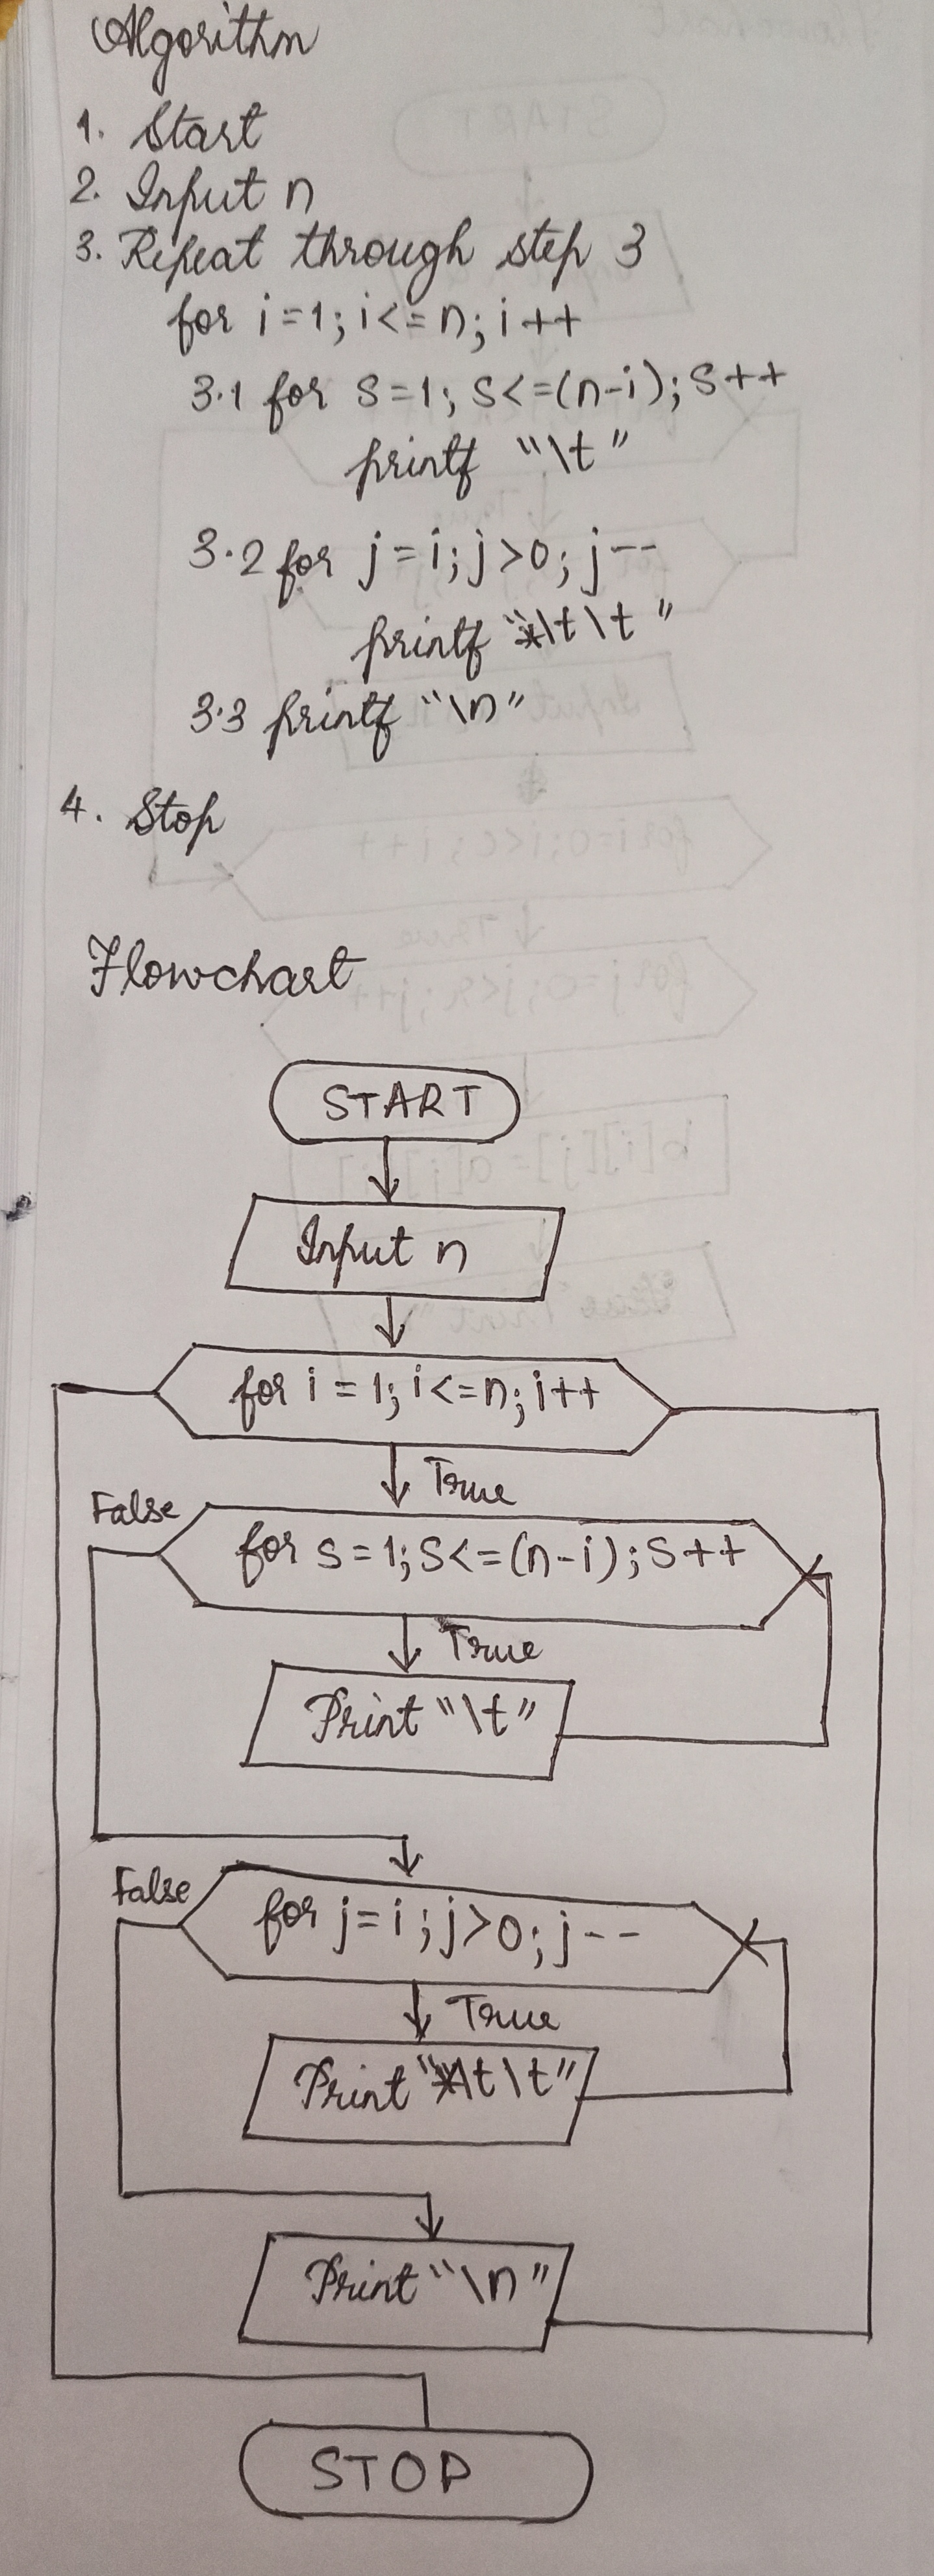 Algorithm
1. Start
2. Input n
3. Repeat through step 3
for i=1; i<=n; i++
3.1 for s=1; s<=(n-i); s++
printf "\t"
3.2 for j=i; j>0; j--
printf "*\t\t"
3.3 printf "\n"
4. Stop
Flowchart
START
Input n
for i=1; i<=n; i++
True
False
for s=1; s<=(n-i); s++
True
Print "\t"
False
for j=i; j>0; j--
True
Print "*\t\t"
Print "\n"
STOP